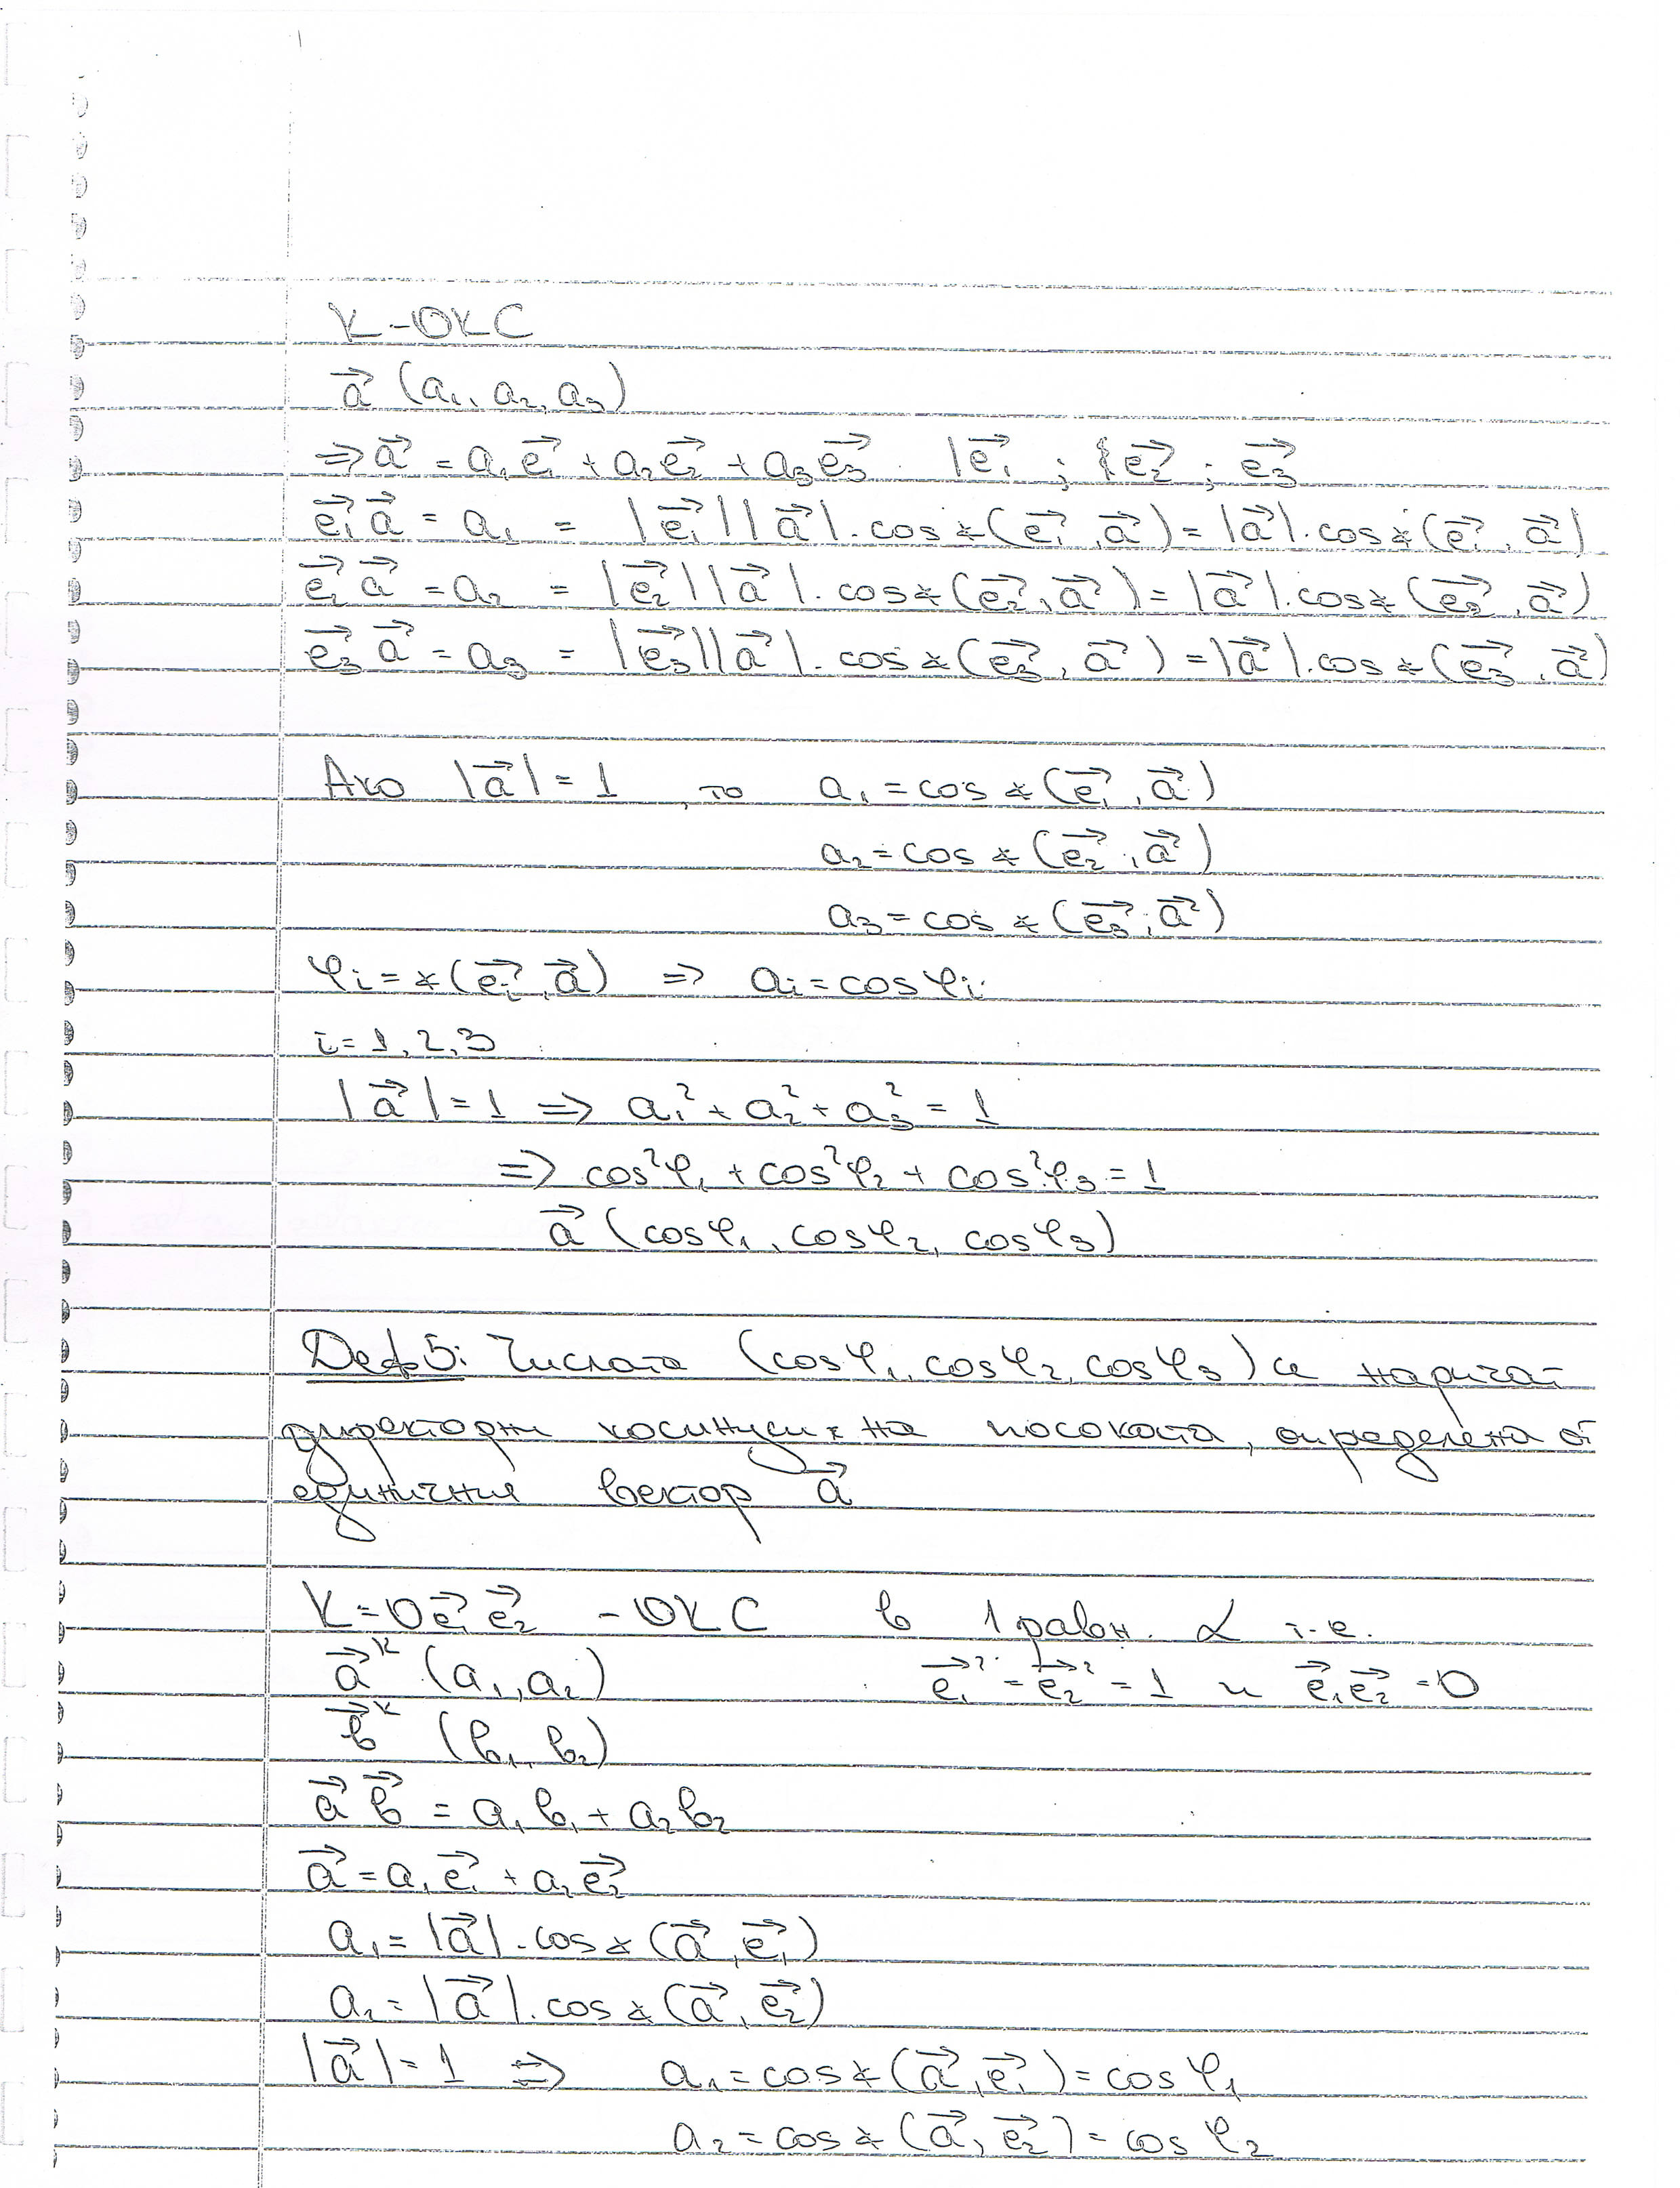 K - ОКС
a⃗ (a₁, a₂, a₃)
⇒ a⃗ = a₁e₁⃗ + a₂e₂⃗ + a₃e₃⃗ |e₁⃗ ; e₂⃗ ; e₃⃗
e₁⃗ a⃗ = a₁ = |e₁⃗||a⃗|.cos∢(e₁⃗, a⃗) = |a⃗|.cos∢(e₁⃗, a⃗)
e₂⃗ a⃗ = a₂ = |e₂⃗||a⃗|.cos∢(e₂⃗, a⃗) = |a⃗|.cos∢(e₂⃗, a⃗)
e₃⃗ a⃗ = a₃ = |e₃⃗||a⃗|.cos∢(e₃⃗, a⃗) = |a⃗|.cos∢(e₃⃗, a⃗)
Ако |a⃗| = 1, то a₁ = cos∢(e₁⃗, a⃗)
a₂ = cos∢(e₂⃗, a⃗)
a₃ = cos∢(e₃⃗, a⃗)
φᵢ = ∢(eᵢ⃗, a⃗) ⇒ aᵢ = cosφᵢ
i = 1, 2, 3
|a⃗| = 1 ⇒ a₁² + a₂² + a₃² = 1
⇒ cos²φ₁ + cos²φ₂ + cos²φ₃ = 1
a⃗ (cosφ₁, cosφ₂, cosφ₃)
Деф 5: Числата (cosφ₁, cosφ₂, cosφ₃) се наричат
директорни косинуси на посоката, определена от
единичния вектор a⃗
K = Oe₁⃗e₂⃗ - ОКС в 1 равн. α т.е.
a⃗ᴷ (a₁, a₂) e₁⃗² = e₂⃗² = 1 и e₁⃗e₂⃗ = 0
b⃗ᴷ (b₁, b₂)
a⃗ b⃗ = a₁b₁ + a₂b₂
a⃗ = a₁e₁⃗ + a₂e₂⃗
a₁ = |a⃗|.cos∢(a⃗, e₁⃗)
a₂ = |a⃗|.cos∢(a⃗, e₂⃗)
|a⃗| = 1 ⇒ a₁ = cos∢(a⃗, e₁⃗) = cosφ₁
a₂ = cos∢(a⃗, e₂⃗) = cosφ₂